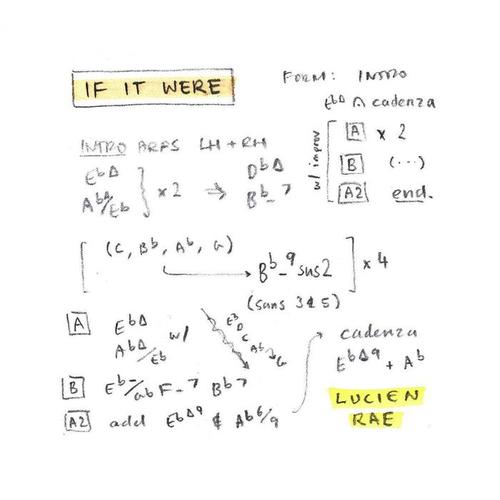 IF IT WERE
FORM: INTRO
Eb∆ ∩ cadenza
w/ improv
A x 2
B (...)
A2 end.
INTRO ARPS LH + RH
Eb∆
Ab∆/Eb
x 2 ⇒
Db∆
Bb-7
(C, Bb, Ab, G)
Bb-9 sus2
x 4
(sans 3 & 5)
A Eb∆
Ab∆/Eb
w/
Eb
D
C
Ab
G
cadenza
Eb∆9 + Ab
B Eb-/ab F-7 Bb7
A2 add Eb∆9 & Ab6/9
LUCIEN
RAE